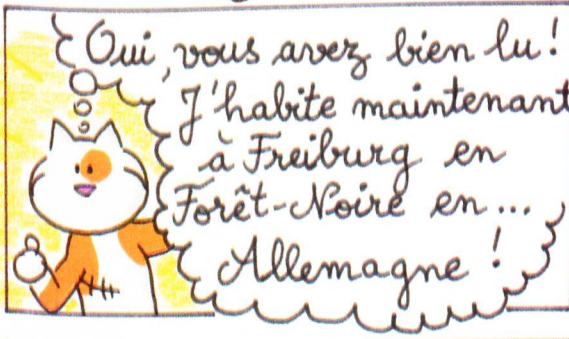 Oui, vous avez bien lu !
J'habite maintenant
à Freiburg en
Forêt-Noire en...
Allemagne !